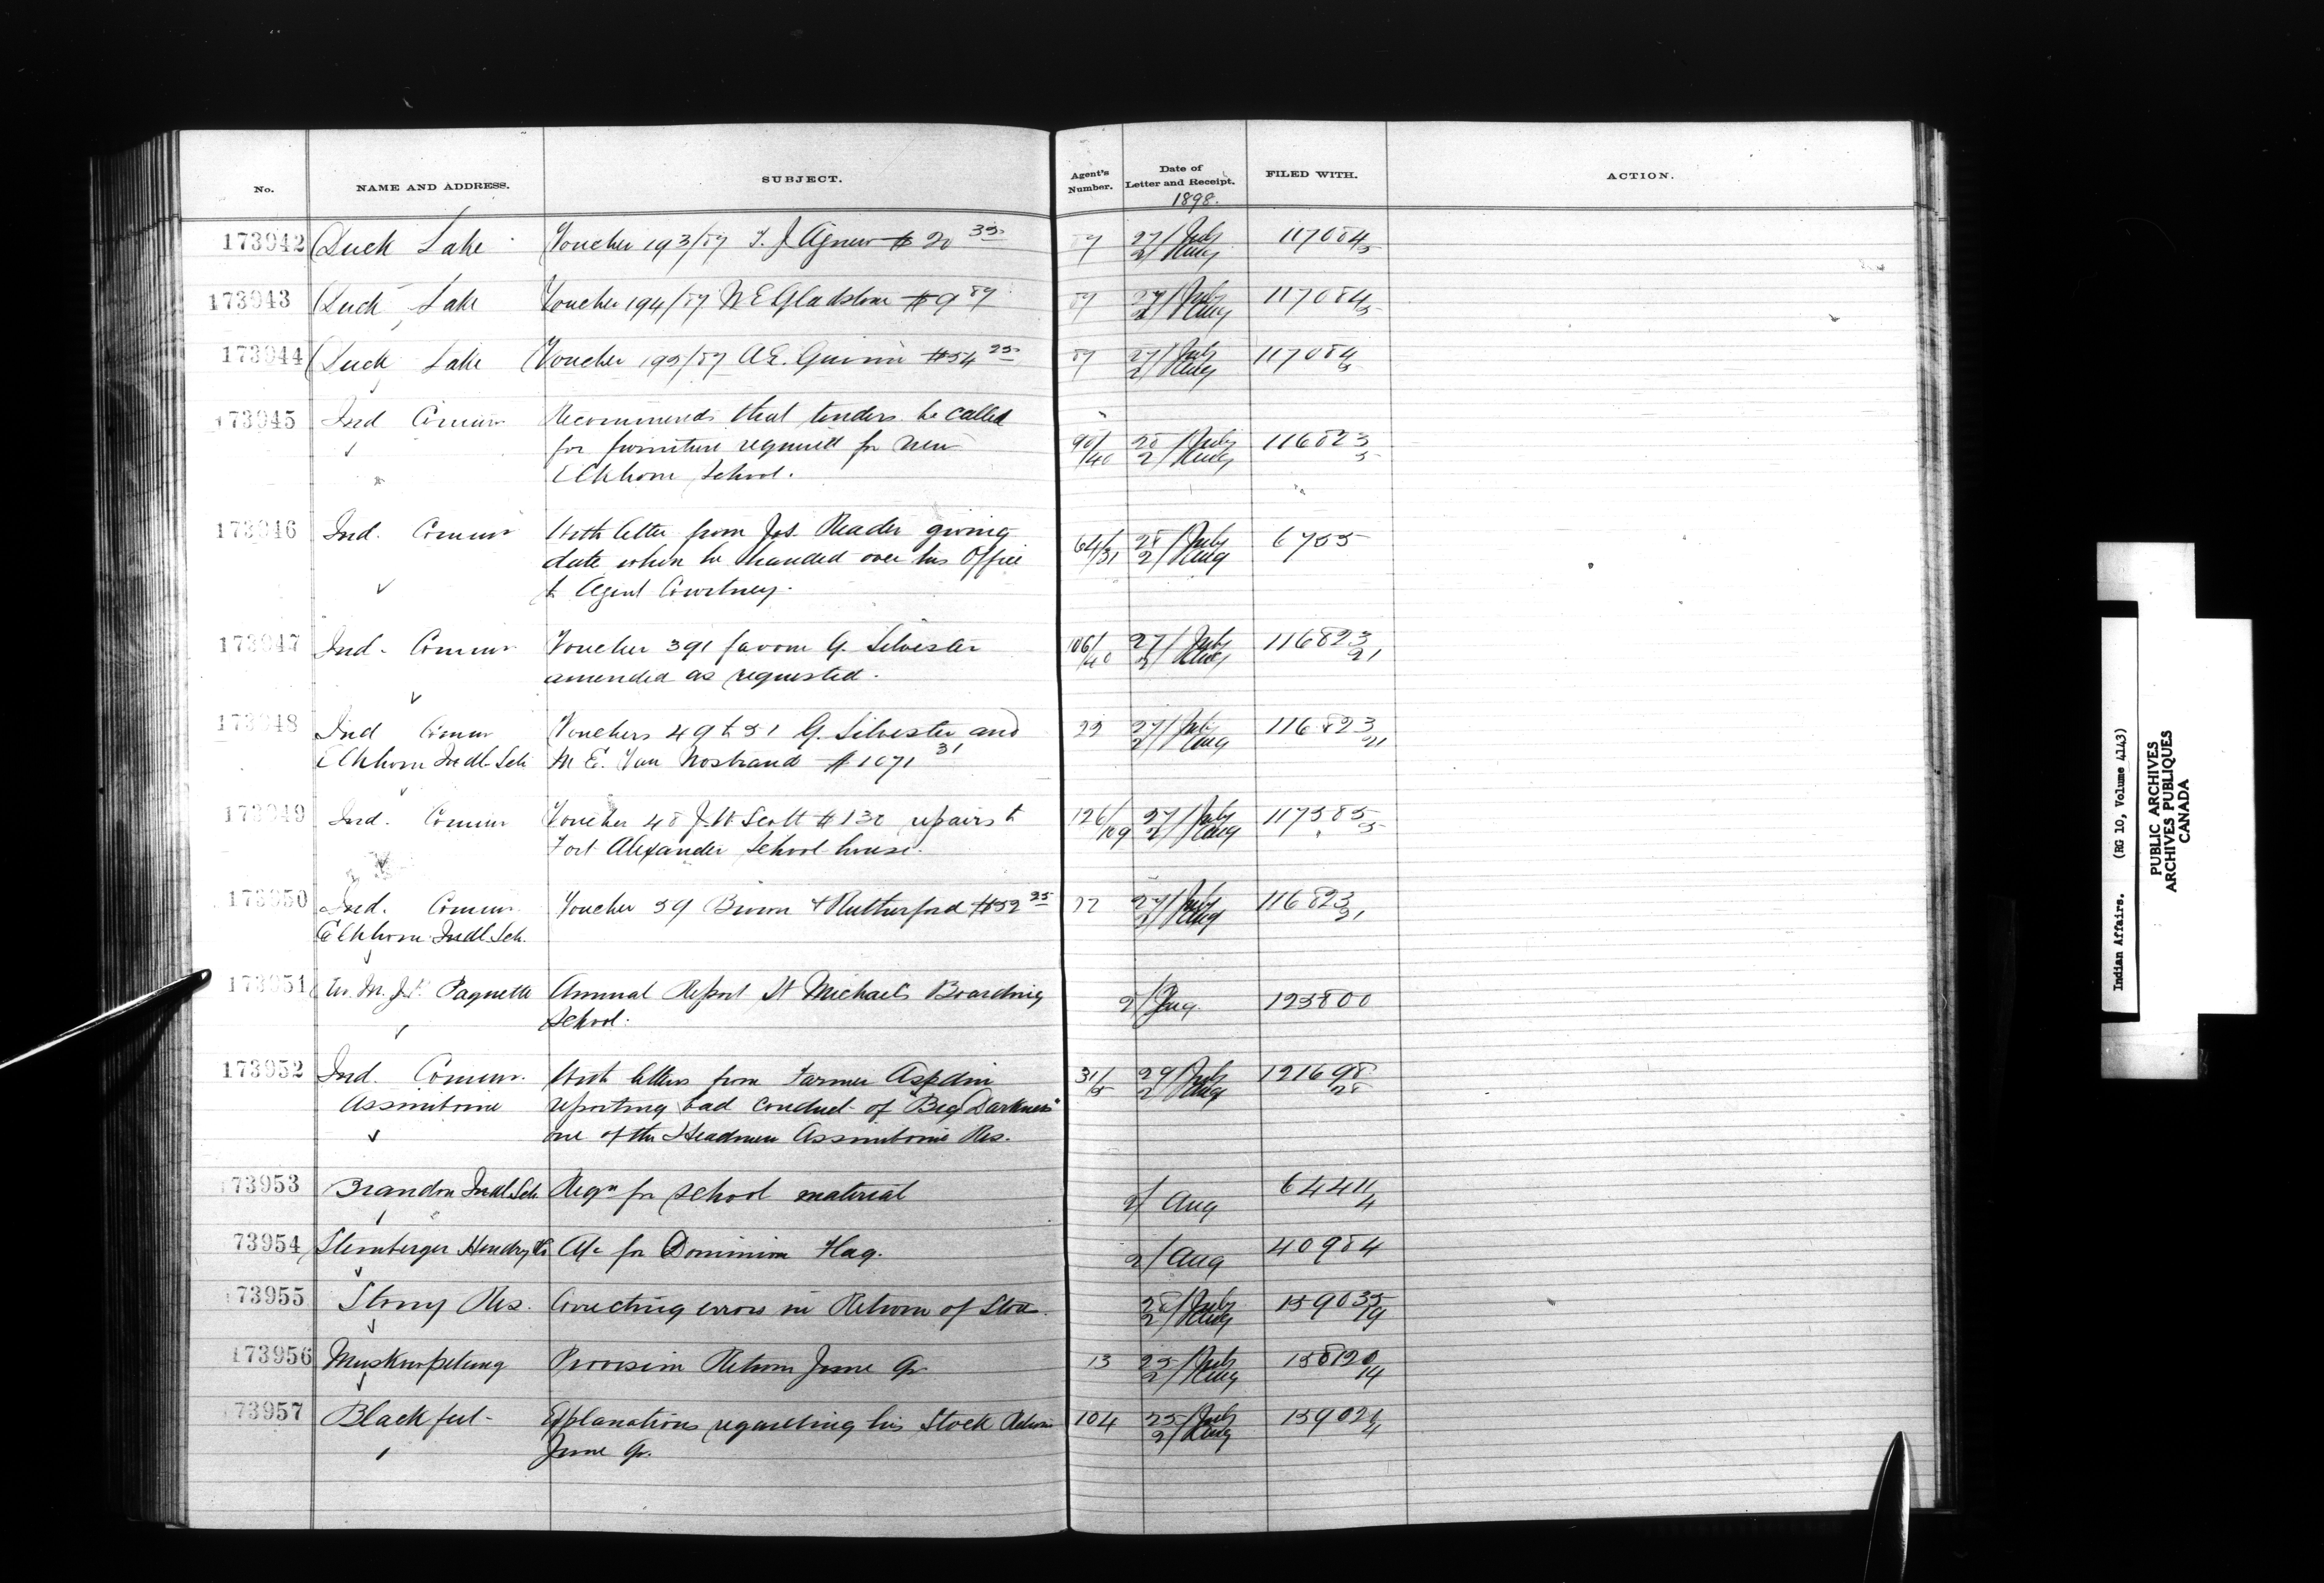 No. NAME AND ADDRESS. SUBJECT. Agent's Number. Date of Letter and Receipt. FILED WITH. ACTION.
1898.
173942 Duck Lake Voucher 193/87 T. J. Agnew $20 35 87 27/July 117084/5
2/Aug
173943 Duck Lake Voucher 194/87 W E Gladstone $9 89 87 27/July 117084/5
2/Aug
173944 Duck Lake Voucher 195/87 A E. $54 25 87 27/July 117084/5
2/Aug
173945 Ind Commr Recommends that tenders be called
for furniture required for new 90/40 28/July 116823/5
Elkhorn School. 2/Aug
173946 Ind. Commr With letter from Jos. Reader giving
date when he handed over his Office 64/31 28/July 6755
to Agent Courtney. 2/Aug
173947 Ind. Commr Voucher 391 favour G. Silvester 106/40 27/July 116823/21
amended as requested. 2/Aug
173948 Ind Commr Vouchers 49 to 51 G. Silvester and 29 27/July 116823/21
Elkhorn Indl. Sch M E. Van Nostrand $1071 31 2/Aug
173949 Ind. Commr Voucher 48 J. W Scott $130 repairs to 126/109 27/July 117585/5
Fort Alexander School house. 2/Aug
173950 Ind. Commr. Voucher 59 & Rutherford $52 25 27/July 116823/21
Elkhorn Indl. Sch. 2/Aug
173951 M. J. P. Paquette Annual Report St Michael's Boarding 2/Aug. 123800
School.
173952 Ind. Commr. With letters from Farmer Aspdin 31/5 29/July 121698/28
Assiniboine reporting bad conduct of "Big Darkness" 2/Aug
one of the Headmen Assiniboine Res.
73953 Brandon Indl. Sch Reqn for school material 2/Aug 64411/4
73954 Stemberger Hendry Co A/c for Dominion Flag. 2/Aug 40984
73955 Stony Res. Correcting errors in Return of Stock. 28/July 159035/19
2/Aug
173956 Muskowpetung Provision Return June Qr 13 25/July 158120/14
2/Aug
73957 Blackfeet Explanations regarding his Stock Return 104 25/July
June Qr. 2/Aug
Indian Affairs. (RG 10, Volume 4143)
PUBLIC ARCHIVES
ARCHIVES PUBLIQUES
CANADA